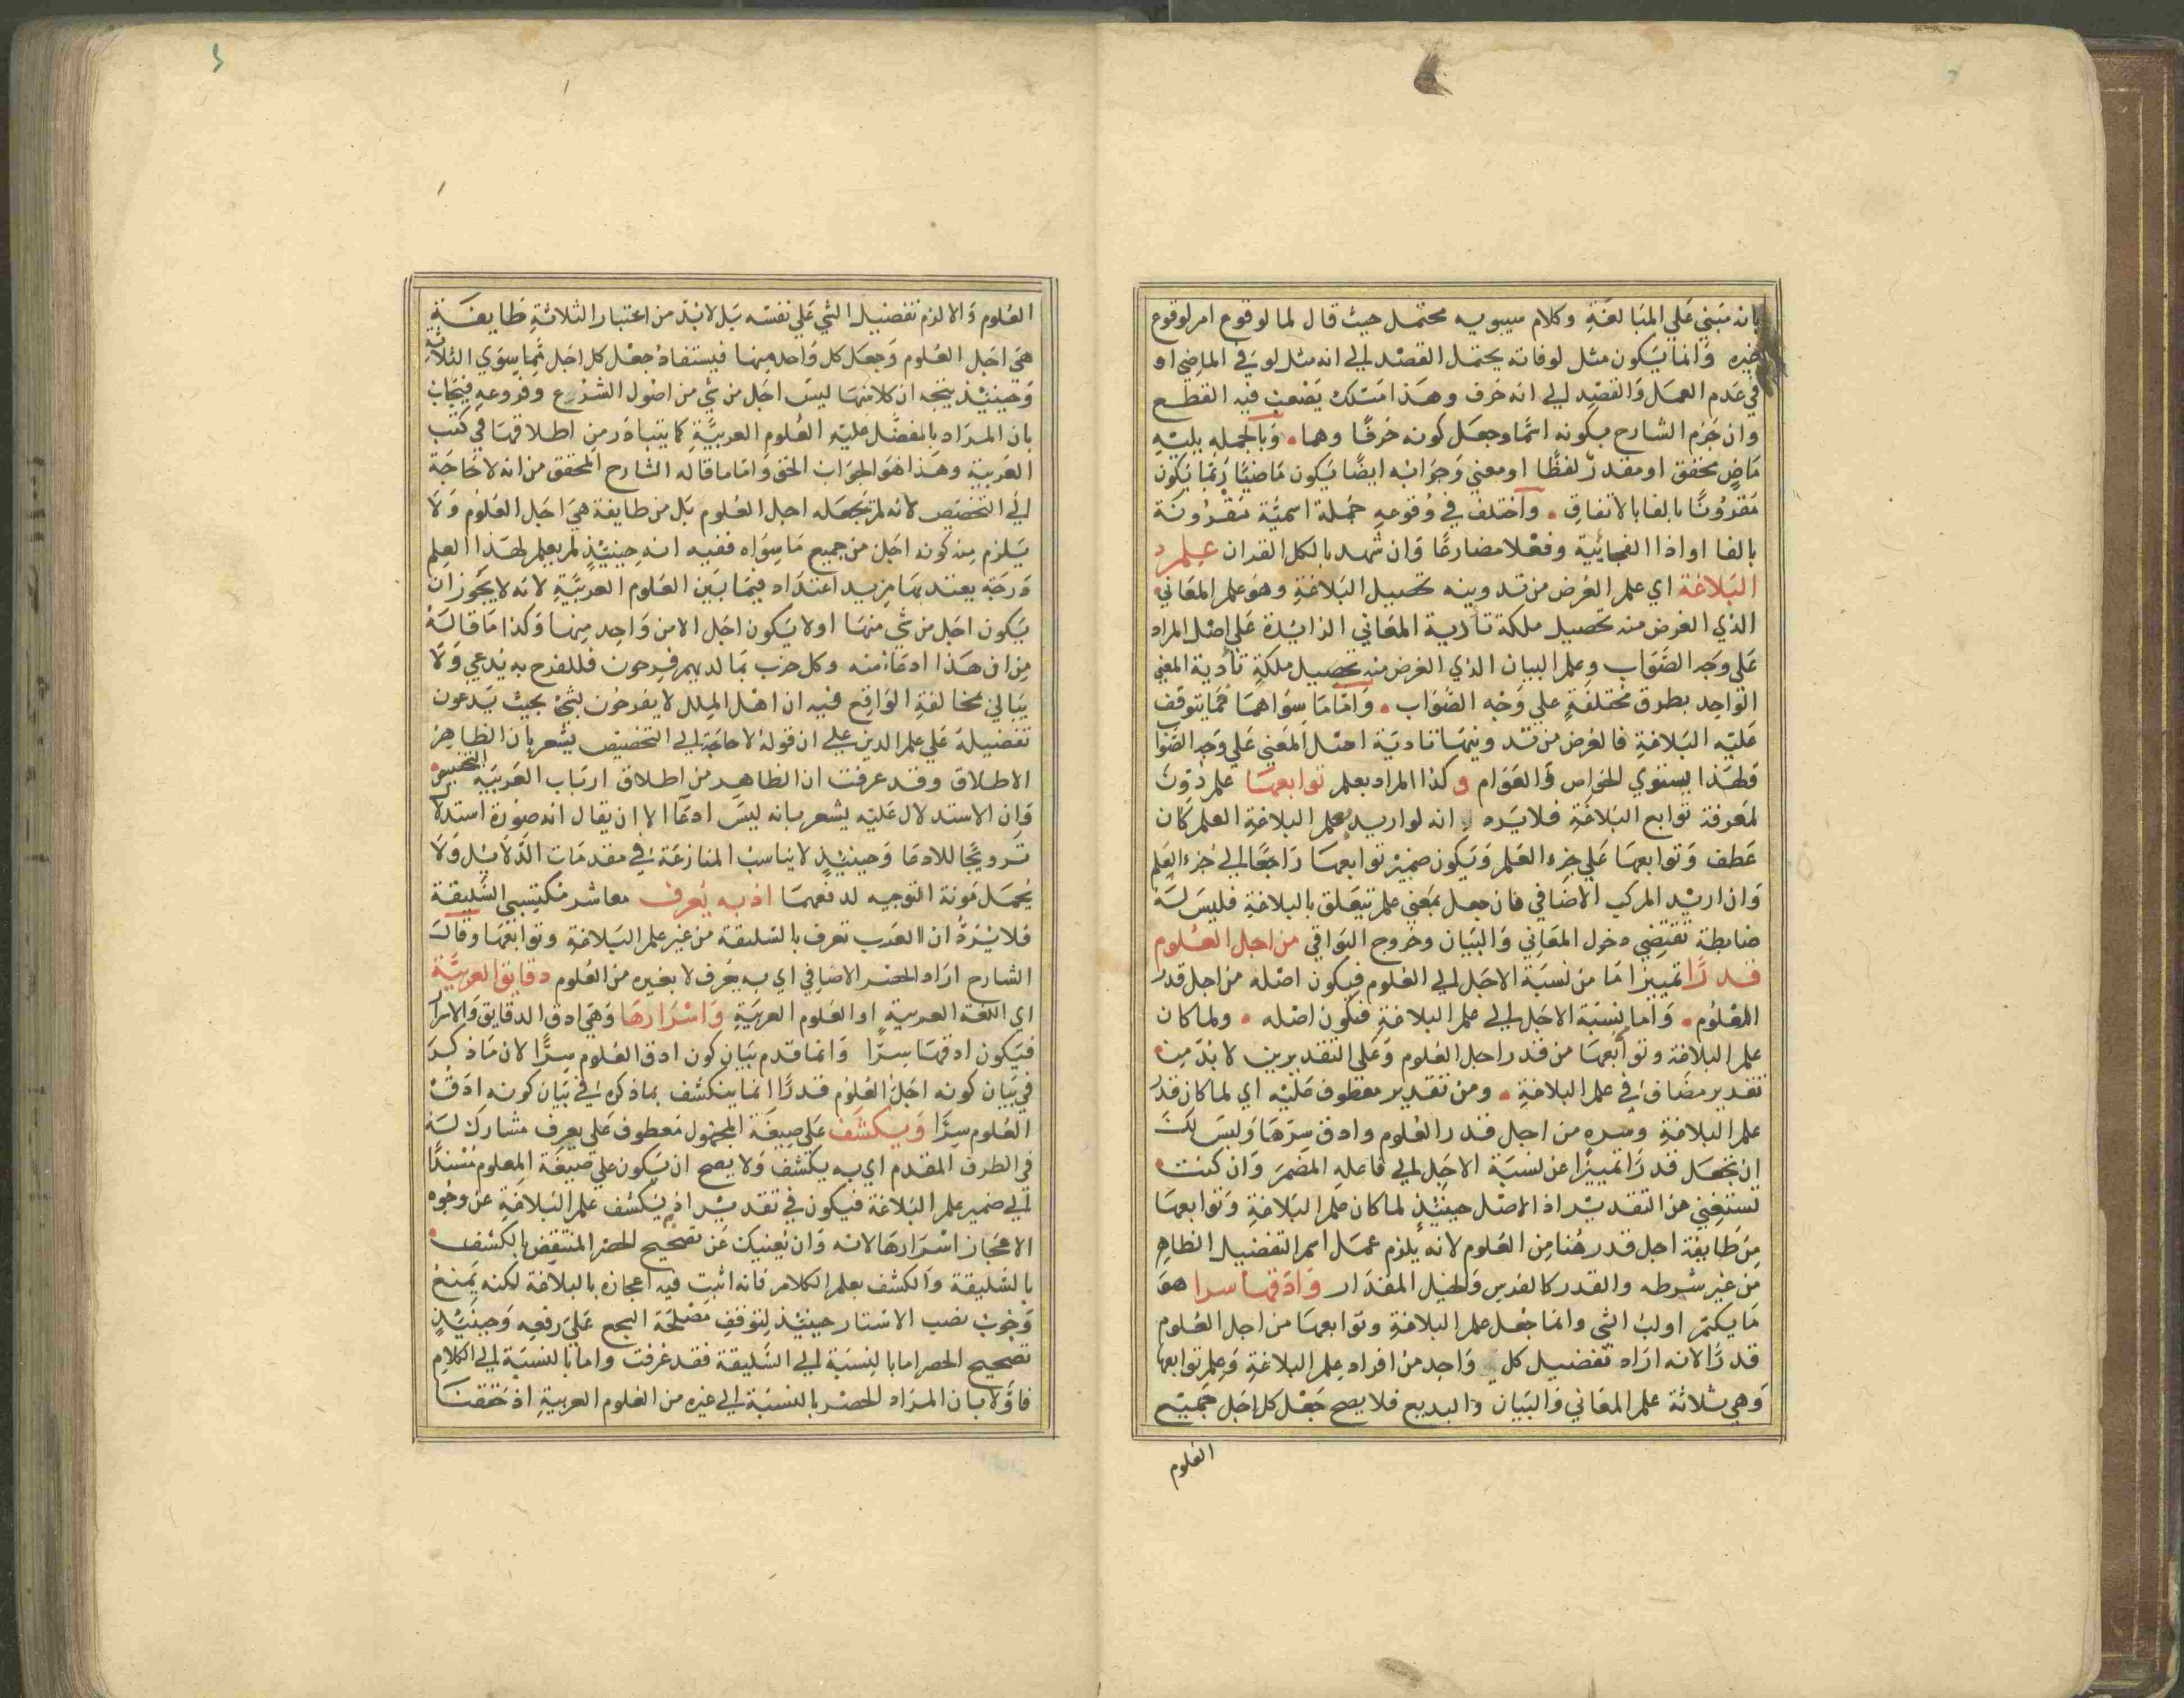 بانه مبني علي المبالغة وكلام سيبويه محتمل حيث قال لما لوقوع امر لوقوع
غيره وانما يكون مثل لو فانه يحتمل القصد الي انه مثل لو في الماضي او
في عدم العمل والقصد الي انه حرف وهذا مسلك يضعف فيه القطع
وان جزم الشارح بكونه اسما وجعل كونه حرفا وهما وبالجملة يليه
ماض محقق او مقدر لفظا او معني وجوابه ايضا يكون ماضيا ربما يكون
مقرونا بالفا بالاتفاق واختلف في وقوعه جملة اسمية مقرونة
بالفا او اذا الفجائية وفعلا مضارعا وان شهد بالكل القران علم
البلاغة اي علم الغرض من تدوينه تحصيل البلاغة وهو علم المعاني
الذي الغرض منه تحصيل ملكة تادية المعاني الزايدة علي اصل المراد
علي وجه الصواب وعلم البيان الذي الغرض منه تحصيل ملكة تأدية المعني
الواحد بطرق مختلفة علي وجه الصواب واما ما سواهما مما يتوقف
عليه البلاغة فالغرض من تدوينها تادية اصل المعني علي وجه الصواب
ولهذا يستوي الخواص والعوام و كذا المراد بعلم توابعها علم دون
لمعرفة توابع البلاغة فلا يرد انه لو اريد بعلم البلاغة العلم كان
عطف وتوابعها علي جزء العلم ويكون ضمير توابعها راجعا الي جزء العلم
وان اريد المركب الاضافي فان جعل بمعني علم يتعلق بالبلاغة فليس له
ضابطة تقتضي دخول المعاني والبيان وخروج البواقي من اجل العلوم
قدرا تمييز اما من نسبة الاجل الي العلوم فيكون اصله من اجل قدر
العلوم واما نسبة الاجل الي علم البلاغة فيكون اصله ولما كان
علم البلاغة وتوابعها من قدر اجل العلوم وعلي التقديرين لا بد من
تقدير مضاف في علم البلاغة ومن تقدير معطوف عليه اي لما كان قدر
علم البلاغة وسره من اجل قدر العلوم وادق سرها وليس لك
ان تجعل قدرا تمييزا عن نسبة الاجل الي فاعله المضمر وان كنت
تستغني عن التقدير اذ الاصل حينئذ لما كان علم البلاغة وتوابعها
من طايفة اجل قدرها من العلوم لانه يلزم عمل اسم التفضيل الظاهر
من غير شرطه والقدر كالفرس والخيل المقدار وادقها سرا هو
ما يكتم او لب الشي وانما جعل علم البلاغة وتوابعها من اجل العلوم
قدرا لانه اراد تفضيل كل واحد من افراد علم البلاغة وعلم توابعها
وهي ثلاثة علم المعاني والبيان والبديع فلا يصح جعل كل اجل جميع
العلوم
العلوم والا لزم تفضيل الشي علي نفسه بل لا بد من اعتبار الثلاثة طايفة
هي اجل العلوم وجعل كل واحد منها فيستفاد جعل كل اجل مما سوي الثلاثة
وحينئذ يتجه ان كلا منها ليس اجل من شي من اصول الشرع وفروعه فيجاب
بان المراد بالمفضل عليه العلوم العربية كما يتبادر من اطلاقها في كتب
العربية وهذا هو الجواب الحق واما ما قاله الشارح المحقق من انه لا حاجة
الي التخصيص لانه لم يجعله اجل العلوم بل من طايفة هي اجل العلوم ولا
يلزم من كونه اجل من جميع ما سواه ففيه انه حينئذ لم يعلم لهذا العلم
درجة يعتد بها مزيد اعتداد فيما بين العلوم العربية لانه لا يجوز ان
يكون اجل من شي منها او لا يكون اجل الا من واحد منها وكذا ما قاله
من ان هذا ادعاء منه وكل حزب بما لديهم فرحون فللفرح به يدعي ولا
يبالي مخالفة الواقع فيه ان اهل الملل لا يفرحون بشي بحيث يدعون
تفضيله علي علم الدين علي ان قوله لا حاجة الي التخصيص يشعر بان الظاهر
الاطلاق وقد عرفت ان الظاهر من اطلاق ارباب العربية التخصيص
وان الاستدلال عليه يشعر بانه ليس ادعا الا ان يقال انه صورة استدلا
ترويجا للادعا وحينئذ لا يناسب المنازعة في مقدمات الدلايل ولا
يحمل مونة التوجيه لدفعها اذ به يعرف معاشر مكتسبي السليقة
فلا يرد ان العرب تعرف بالسليقة من غير علم البلاغة وتوابعها وقال
الشارح اراد الحصر الاضافي اي به يعرف لا بغيره من العلوم دقايق العربية
اي اللغة العربية او العلوم العربية واسرارها وهي ادق الدقايق والاسرار
فيكون ادقها سرا وانما قدم بيان كون ادق العلوم سرا لان ما ذكر
في بيان كونه اجل العلوم قدرا انما ينكشف بما ذكره في بيان كونه ادق
العلوم سرا ويكشف علي صيغة المجهول معطوف علي يعرف مشارك له
في الظرف المقدم اي به يكشف ولا يصح ان يكون علي صيغة المعلوم مسندا
الي ضمير علم البلاغة فيكون في تقدير اذ يكشف علم البلاغة عن وجوه
الاعجاز اسرارها لانه وان يغنيك عن تصحيح الحصر المنتقض بالكشف
بالسليقة والكشف بعلم الكلام فانه اثبت فيه اعجازه بالبلاغة لكنه يمنع
وجوب نصب الاستار حينئذ لتوقف مصلحة السجع علي رفعه وحينئذ
تصحيح الحصر اما بالنسبة الي السليقة فقد عرفت واما بالنسبة الي الكلام
فاولا بان المراد الحصر بالنسبة الي غيره من العلوم العربية اذ حققنا